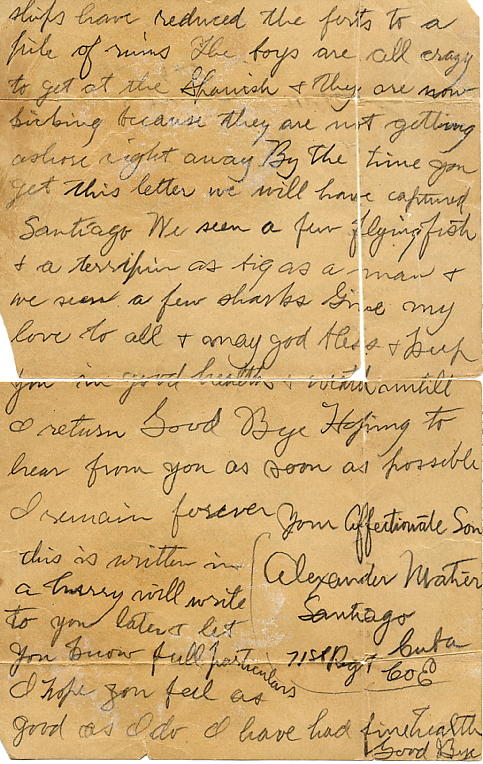 ships have reduced the forts to a
pile of ruins The boys are all crazy
to get at the Spanish & they are now
kicking because they are not getting
ashore right away By the time you
get this letter we will have captured
Santiago We seen a few flying fish
& a terripin as big as a man &
we seen a few sharks Give my
love to all & may god bless & keep
you in good health & untill
I return Good Bye Hoping to
hear from you as soon as possible
I remain forever
Your Affectionate Son
Alexander
Santiago
Cuba
71st Regt
this is written in
a hurry will write
to you later & let
you know full particulars
I hope you feel as
good as I do I have had fine health
Good Bye